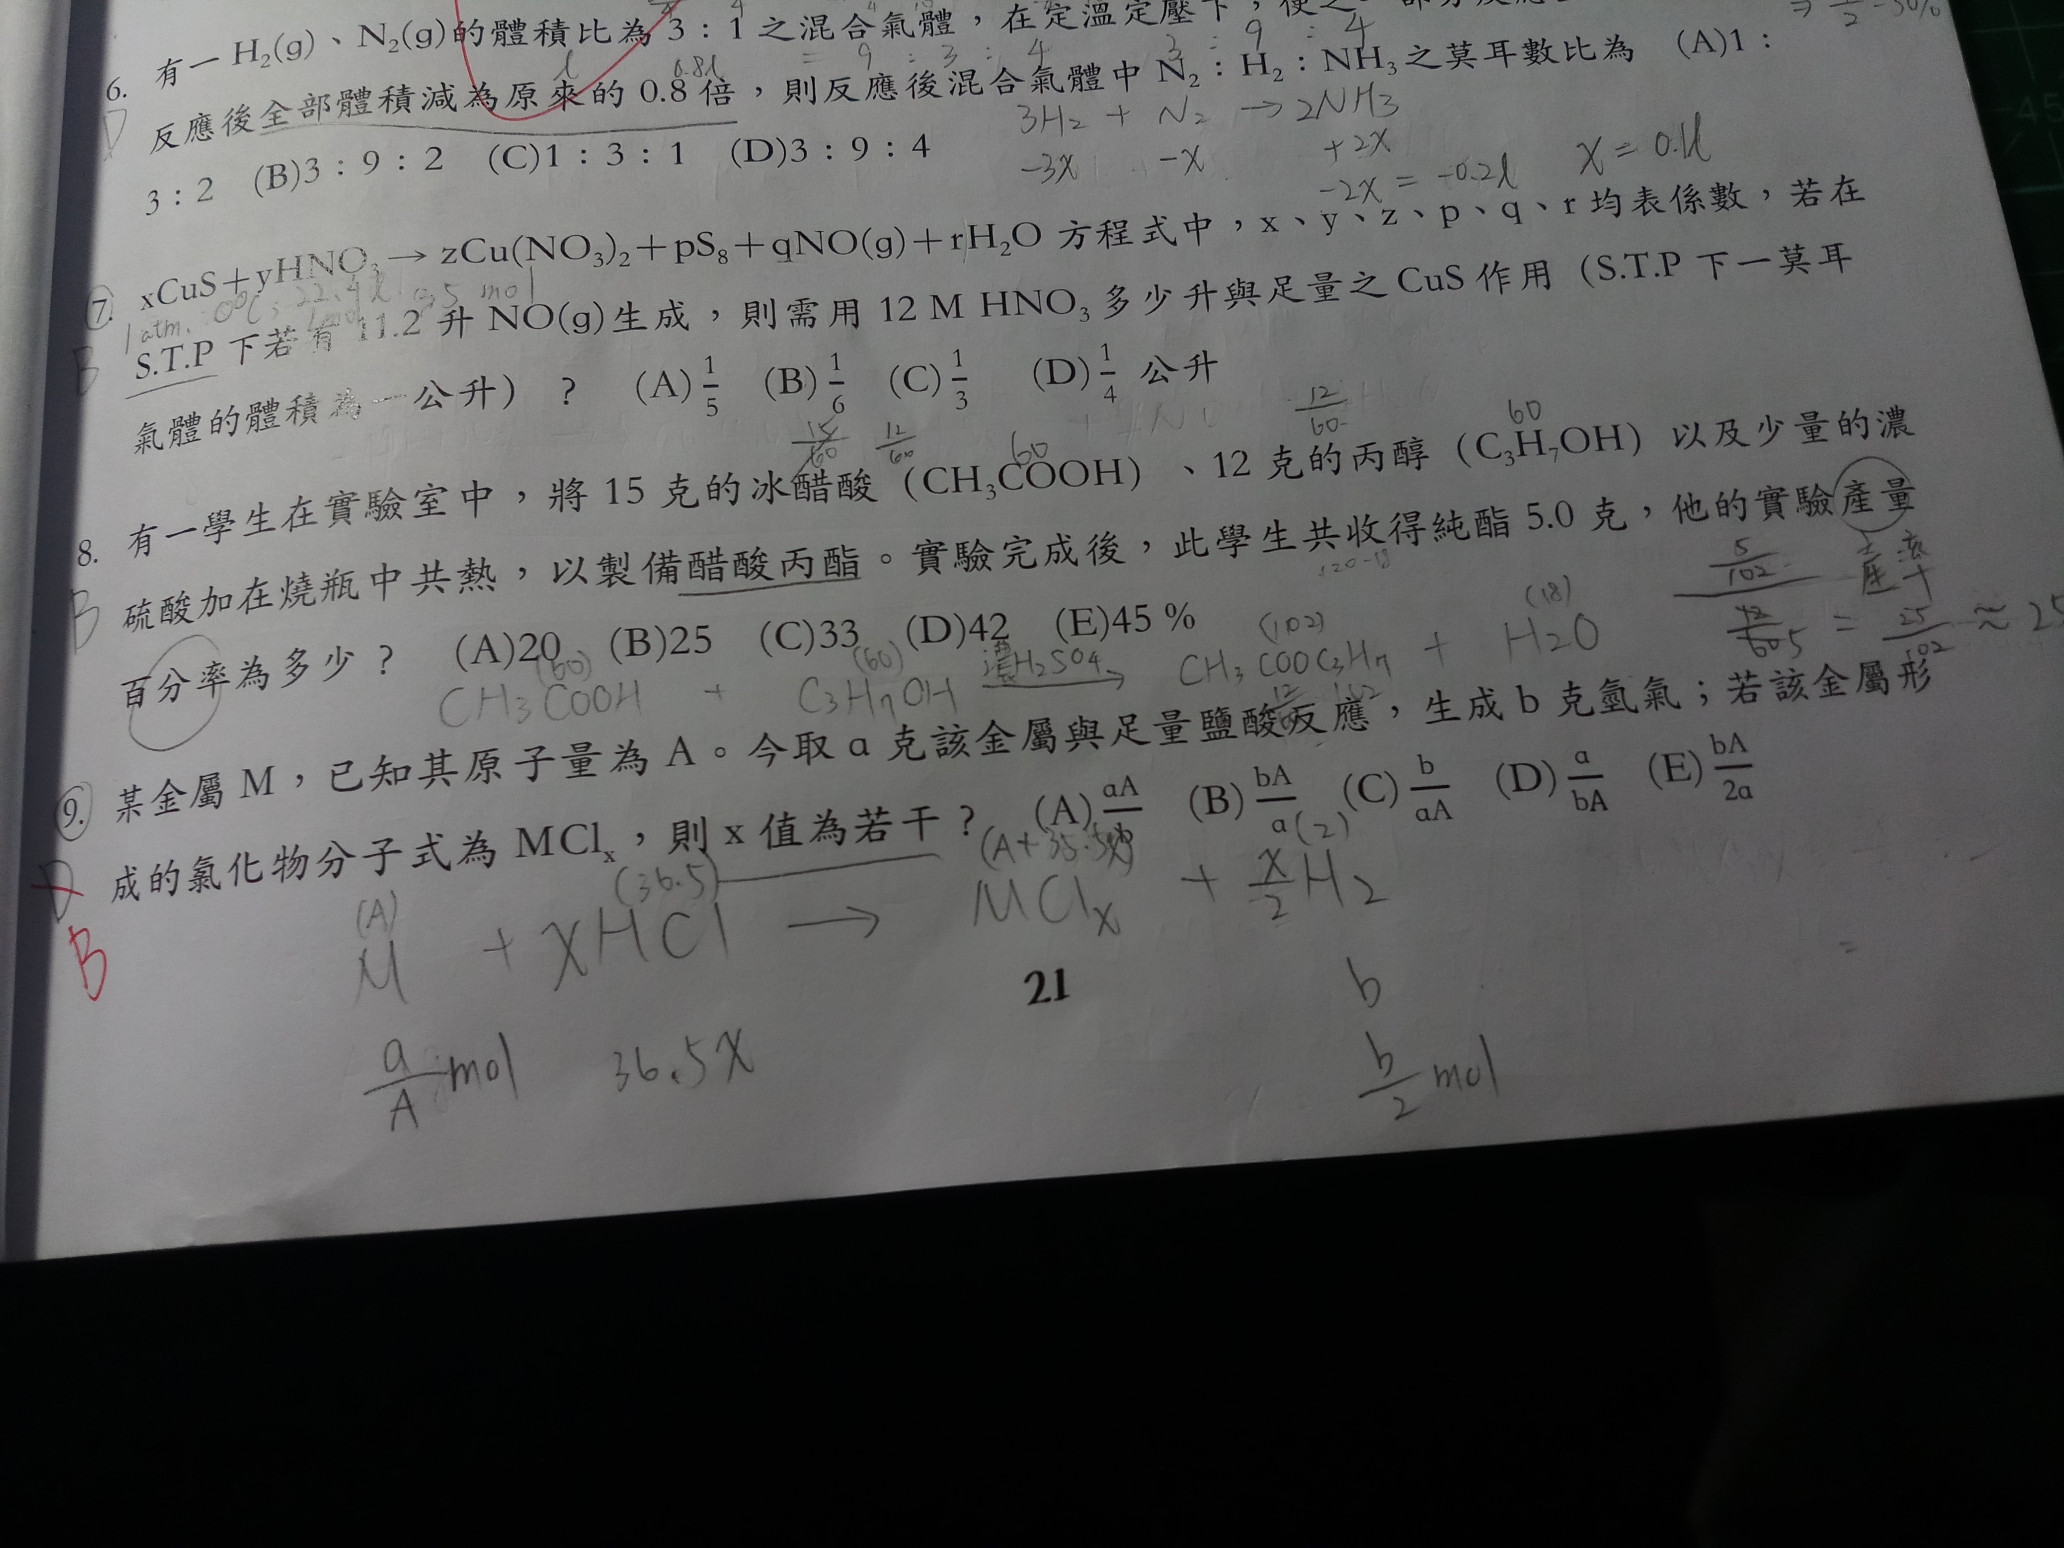 6. 有一 H₂(g)、N₂(g)的體積比為 3：1 之混合氣體，在定溫定壓下，使之
= 9 : 3 : 4 3 : 9 : 4
l 0.8l
D 反應後全部體積減為原來的 0.8 倍，則反應後混合氣體中 N₂：H₂：NH₃之莫耳數比為 (A)1：
3H₂ + N₂ → 2NH₃
3：2 (B)3：9：2 (C)1：3：1 (D)3：9：4
-3x -x +2x
-2x = -0.2l x = 0.1l
7. xCuS＋yHNO₃→ zCu(NO₃)₂＋pS₈＋qNO(g)＋rH₂O 方程式中，x、y、z、p、q、r 均表係數，若在
1 atm. 0°C, 22.4l 0.5 mol
B S.T.P 下若有 11.2 升 NO(g)生成，則需用 12 M HNO₃ 多少升與足量之 CuS 作用（S.T.P 下一莫耳
氣體的體積為一公升）？ (A)1/5 (B)1/6 (C)1/3 (D)1/4 公升
15/60 12/60 60 12/60 60
8. 有一學生在實驗室中，將 15 克的冰醋酸（CH₃COOH）、12 克的丙醇（C₃H₇OH）以及少量的濃
B 硫酸加在燒瓶中共熱，以製備醋酸丙酯。實驗完成後，此學生共收得純酯 5.0 克，他的實驗產量
120-18 產率
百分率為多少？ (A)20 (B)25 (C)33 (D)42 (E)45 %
(60) (60) 濃H₂SO₄ (102) (18)
CH₃COOH + C₃H₇OH → CH₃COOC₃H₇ + H₂O
5/102 = 25/102 ≈ 25
9. 某金屬 M，已知其原子量為 A。今取 a 克該金屬與足量鹽酸反應，生成 b 克氫氣；若該金屬形
D 成的氯化物分子式為 MClₓ，則 x 值為若干？ (A)aA/b (B)bA/a (C)b/aA (D)a/bA (E)bA/2a
B
(A) (36.5) (A+35.5x) (2)
M + xHCl → MClₓ + x/2 H₂
21
b
a/A mol 36.5x b/2 mol